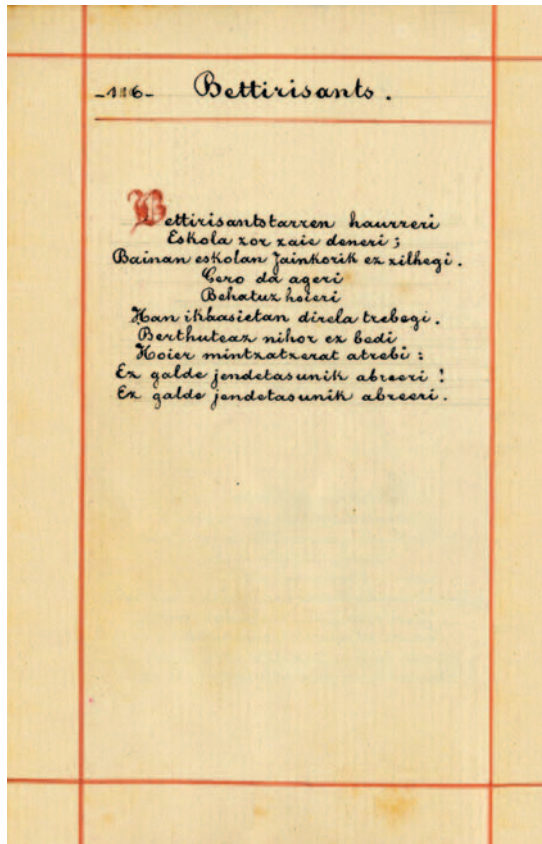 -116- Bettirisants.
Bettirisantstarren haurreri
Eskola zor zaie deneri ;
Bainan eskolan Jainkorik ez zilhegi.
Gero da ageri
Behatuz heieri
Han ikhasietan direla trebegi.
Berthuteaz nihor ez bedi
Hoier mintzatzerat atrebi :
Ez galde jendetasunik abreeri !
Ez galde jendetasunik abreeri.